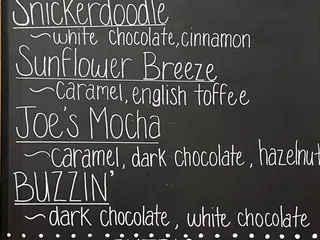 Snickerdoodle
~white chocolate, cinnamon
Sunflower Breeze
~caramel, english toffee
Joe's Mocha
~caramel, dark chocolate, hazelnut
BUZZIN'
~dark chocolate, white chocolate